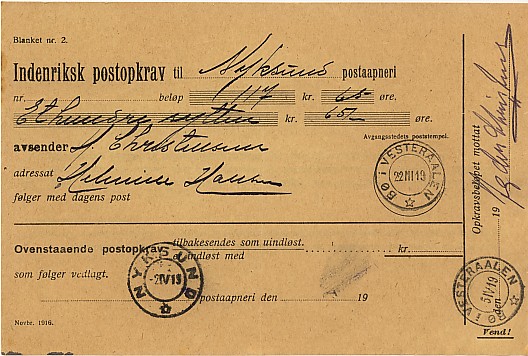 Blanket nr. 2.
Indenriksk postopkrav til Nyksund postaapneri
nr. beløp 117 kr. 65 øre.
Et hundre sytten kr. 65 øre.
Avgangsstedets poststempel.
avsender H. Christensen
adressat Helmine Hansen
følger med dagens post
BØ i VESTERAALEN
22 III 19
Ovenstaaende postopkrav tilbakesendes som uindløst.
er indløst med kr.
som følger vedlagt.
NYKSUND
-2 IV 19
postaapneri den 19
Novbr. 1916.
Opkravsbeløpet mottat
den 19
BØ i VESTERAALEN
5 IV 19
Vend!